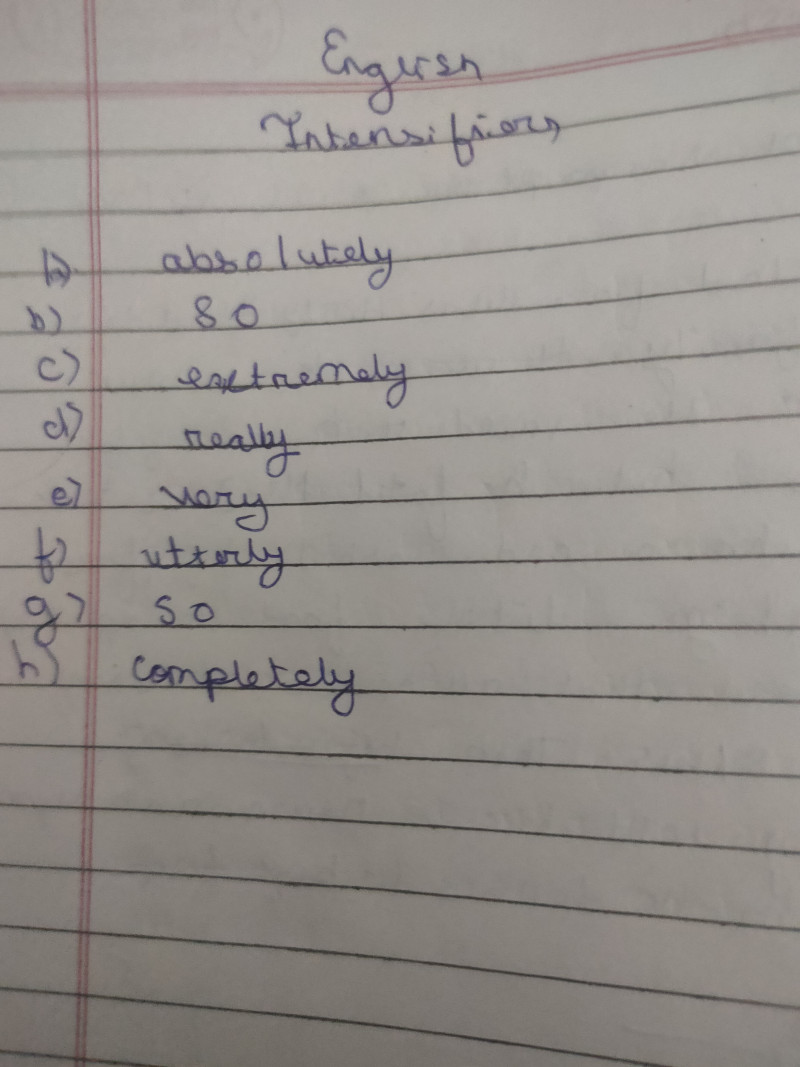 English
Intensifiers
a) absolutely
b) so
c) extremely
d) really
e) very
f) utterly
g) so
h) completely